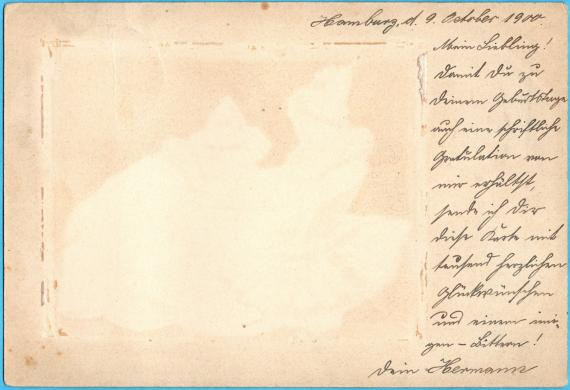 Hamburg, d. 9. October 1900.
Mein Liebling!
Damit Du zu
Deinem Geburtstage
auch eine schriftliche
Gratulation von
mir erhältst,
sende ich Dir
diese Karte mit
tausend herzlichen
Glückwünschen
und einem inni-
gen – Bittern!
Dein Hermann